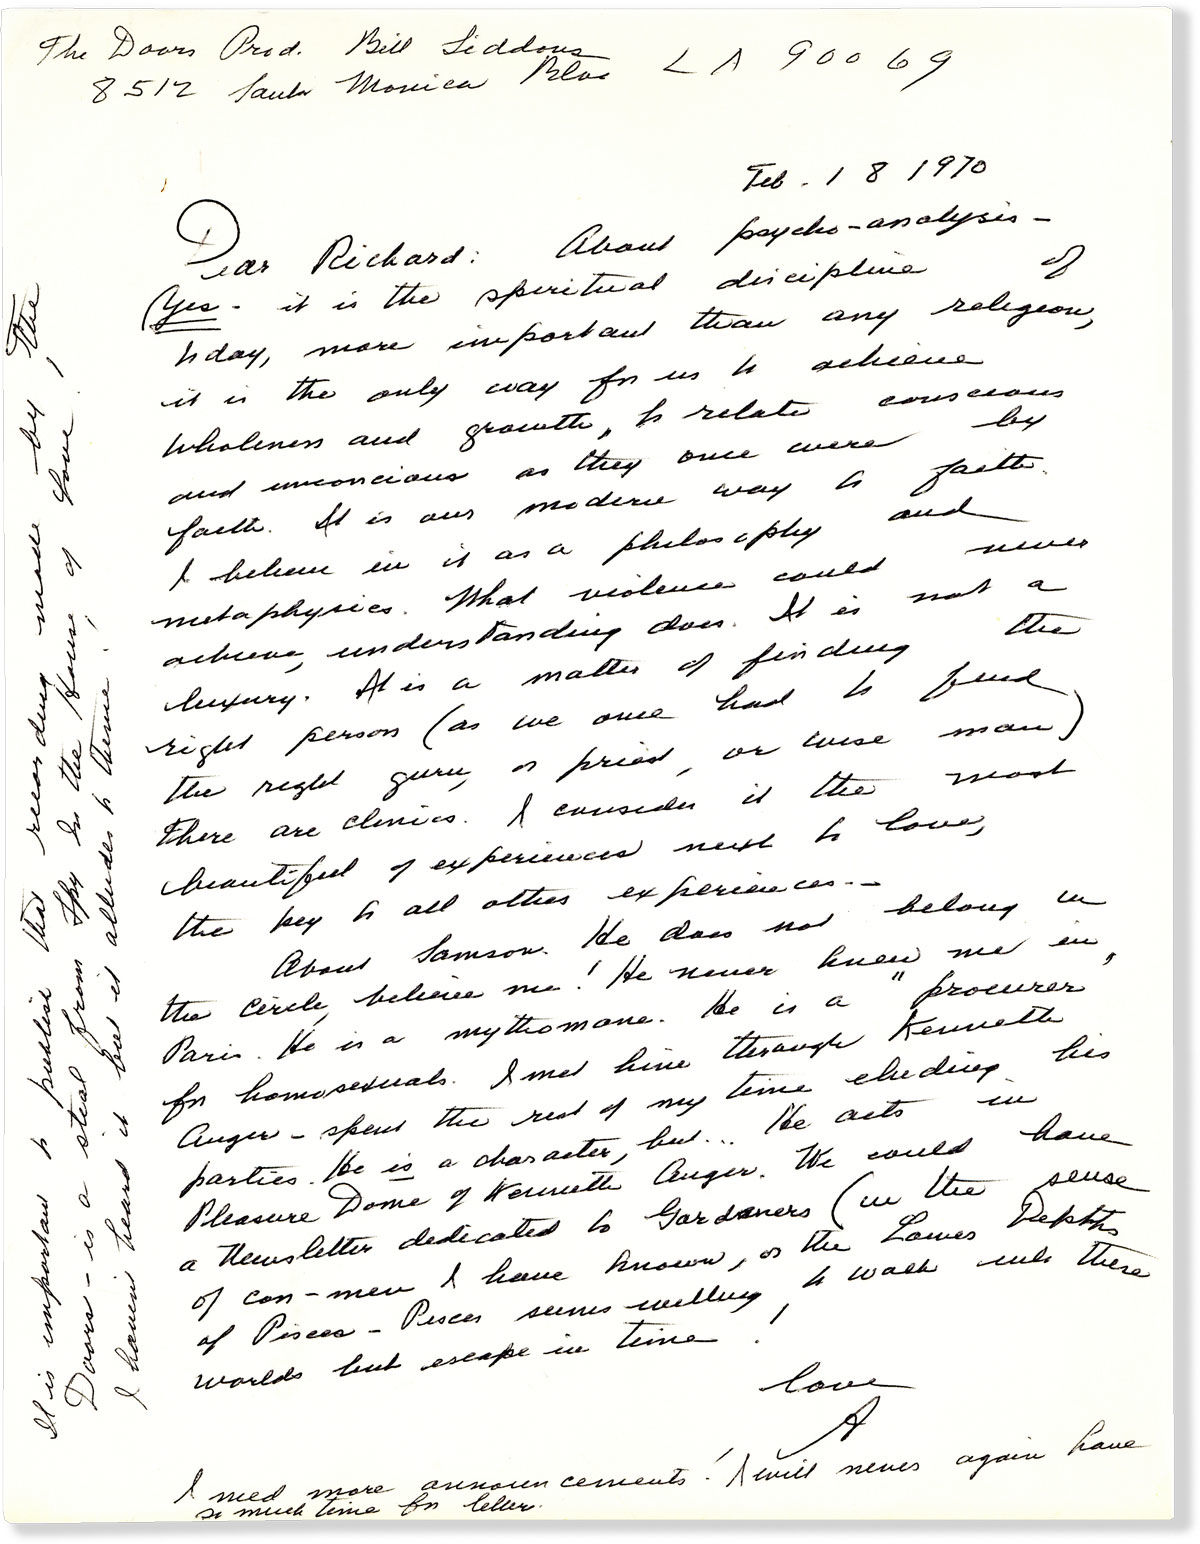 The Doors Prod. Bill Siddons
8512 Santa Monica Blvd LA 90069
Feb. 18 1970
Dear Richard: About psycho-analysis -
(Yes - it is the spiritual discipline of
today, more important than any religion,
it is the only way for us to achieve
wholeness and growth, to relate conscious
and unconcious as they once were by
faith. It is our modern way to faith.
I believe in it as a philosophy and
metaphysics. What violence could never
achieve, understanding does. It is not a
luxury. It is a matter of finding the
right person (as we once had to find
the right guru, or priest, or wise man)
There are clinics. I consider it the most
beautiful of experiences next to love,
the key to all other experiences.--
About Samson. He does not belong in
the circle, believe me! He never knew me in
Paris. He is a mythomane. He is a "procurer"
for homosexuals. I met him through Kenneth
Anger - spent the rest of my time eluding his
parties. He is a character, but... He acts in
Pleasure Dome of Kenneth Anger. We could have
a Newsletter dedicated to Gardeners (in the sense
of con-men I have known, or the Lower Depths
of Pisces - Pisces seems willing to walk into these
worlds but escape in time!
love
A
I need more announcements! I will never again have
so much time for letter.
It is important to publish that recording made - by the
Doors - is a steal from Spy In the House of Love,
I havent heard it but it alludes to theme!